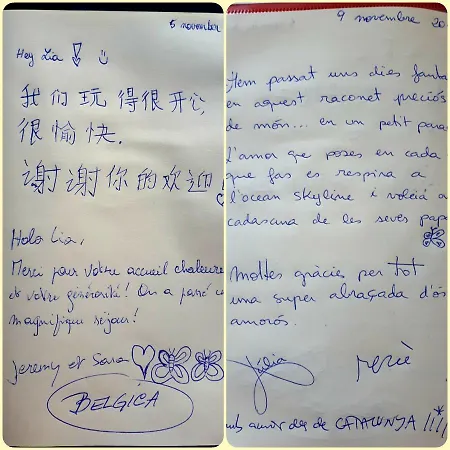 5 november
Hey Lia ! :)
我们玩得很开心,
很愉快.
谢谢你的欢迎!
Hola Lia,
Merci pour votre accueil chaleure
et votre générosité! On a passé
magnifique séjour!
Jeremy et Sara
BELGICA
9 novembre 20
Hem passat uns dies fanta
en aquest raconet preciós
de món... en un petit para
L'amor que poses en cada
que fas es respira a
l'ocean skyline i voleiá a
cadascuna de les seves pape
Moltes gràcies per tot
una super abraçada d'ós
amorós.
Júlia
mb amor des de CATALUNYA !!!